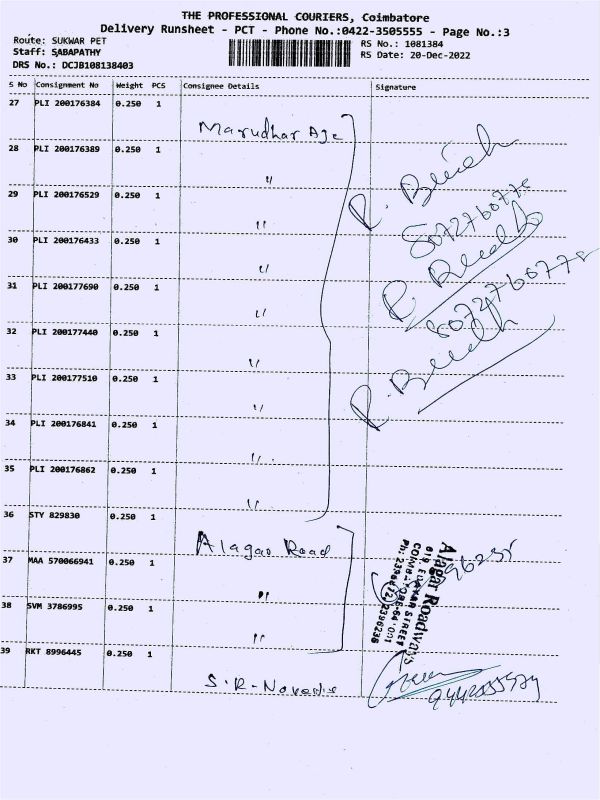 THE PROFESSIONAL COURIERS, Coimbatore
Delivery Runsheet - PCT - Phone No.:0422-3505555 - Page No.:3
Route: SUKWAR PET
RS No.: 1081384
Staff: SABAPATHY
RS Date: 20-Dec-2022
DRS No.: DCJB108138403
S No Consignment No Weight PCS Consignee Details Signature
27 PLI 200176384 0.250 1
Marudhar Age
28 PLI 200176389 0.250 1
"
29 PLI 200176529 0.250 1
"
30 PLI 200176433 0.250 1
"
31 PLI 200177690 0.250 1
"
32 PLI 200177440 0.250 1
"
33 PLI 200177510 0.250 1
"
34 PLI 200176841 0.250 1
"
35 PLI 200176862 0.250 1
"
36 STY 829830 0.250 1
Alagar Road
37 MAA 570066941 0.250 1
"
38 SVM 3786995 0.250 1
"
39 RKT 8996445 0.250 1
S.R-
Alagar Roadways
STREET